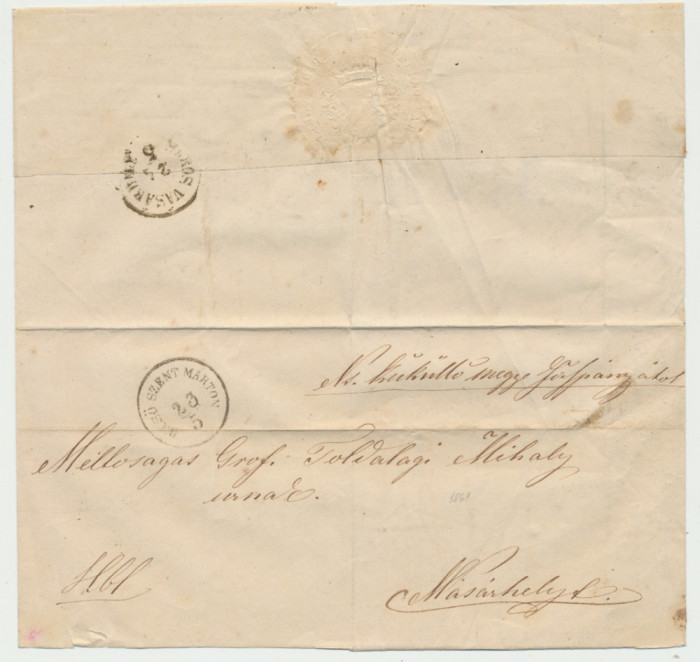 MAROS VÁSÁRHELY
DICSÖ SZENT MÁRTON
23
Ns. küküllő megye Főispánjától
Méltosagas Grof. Toldalagi Mihaly
urnak.
1861
Hbl
MVásárhelyt.